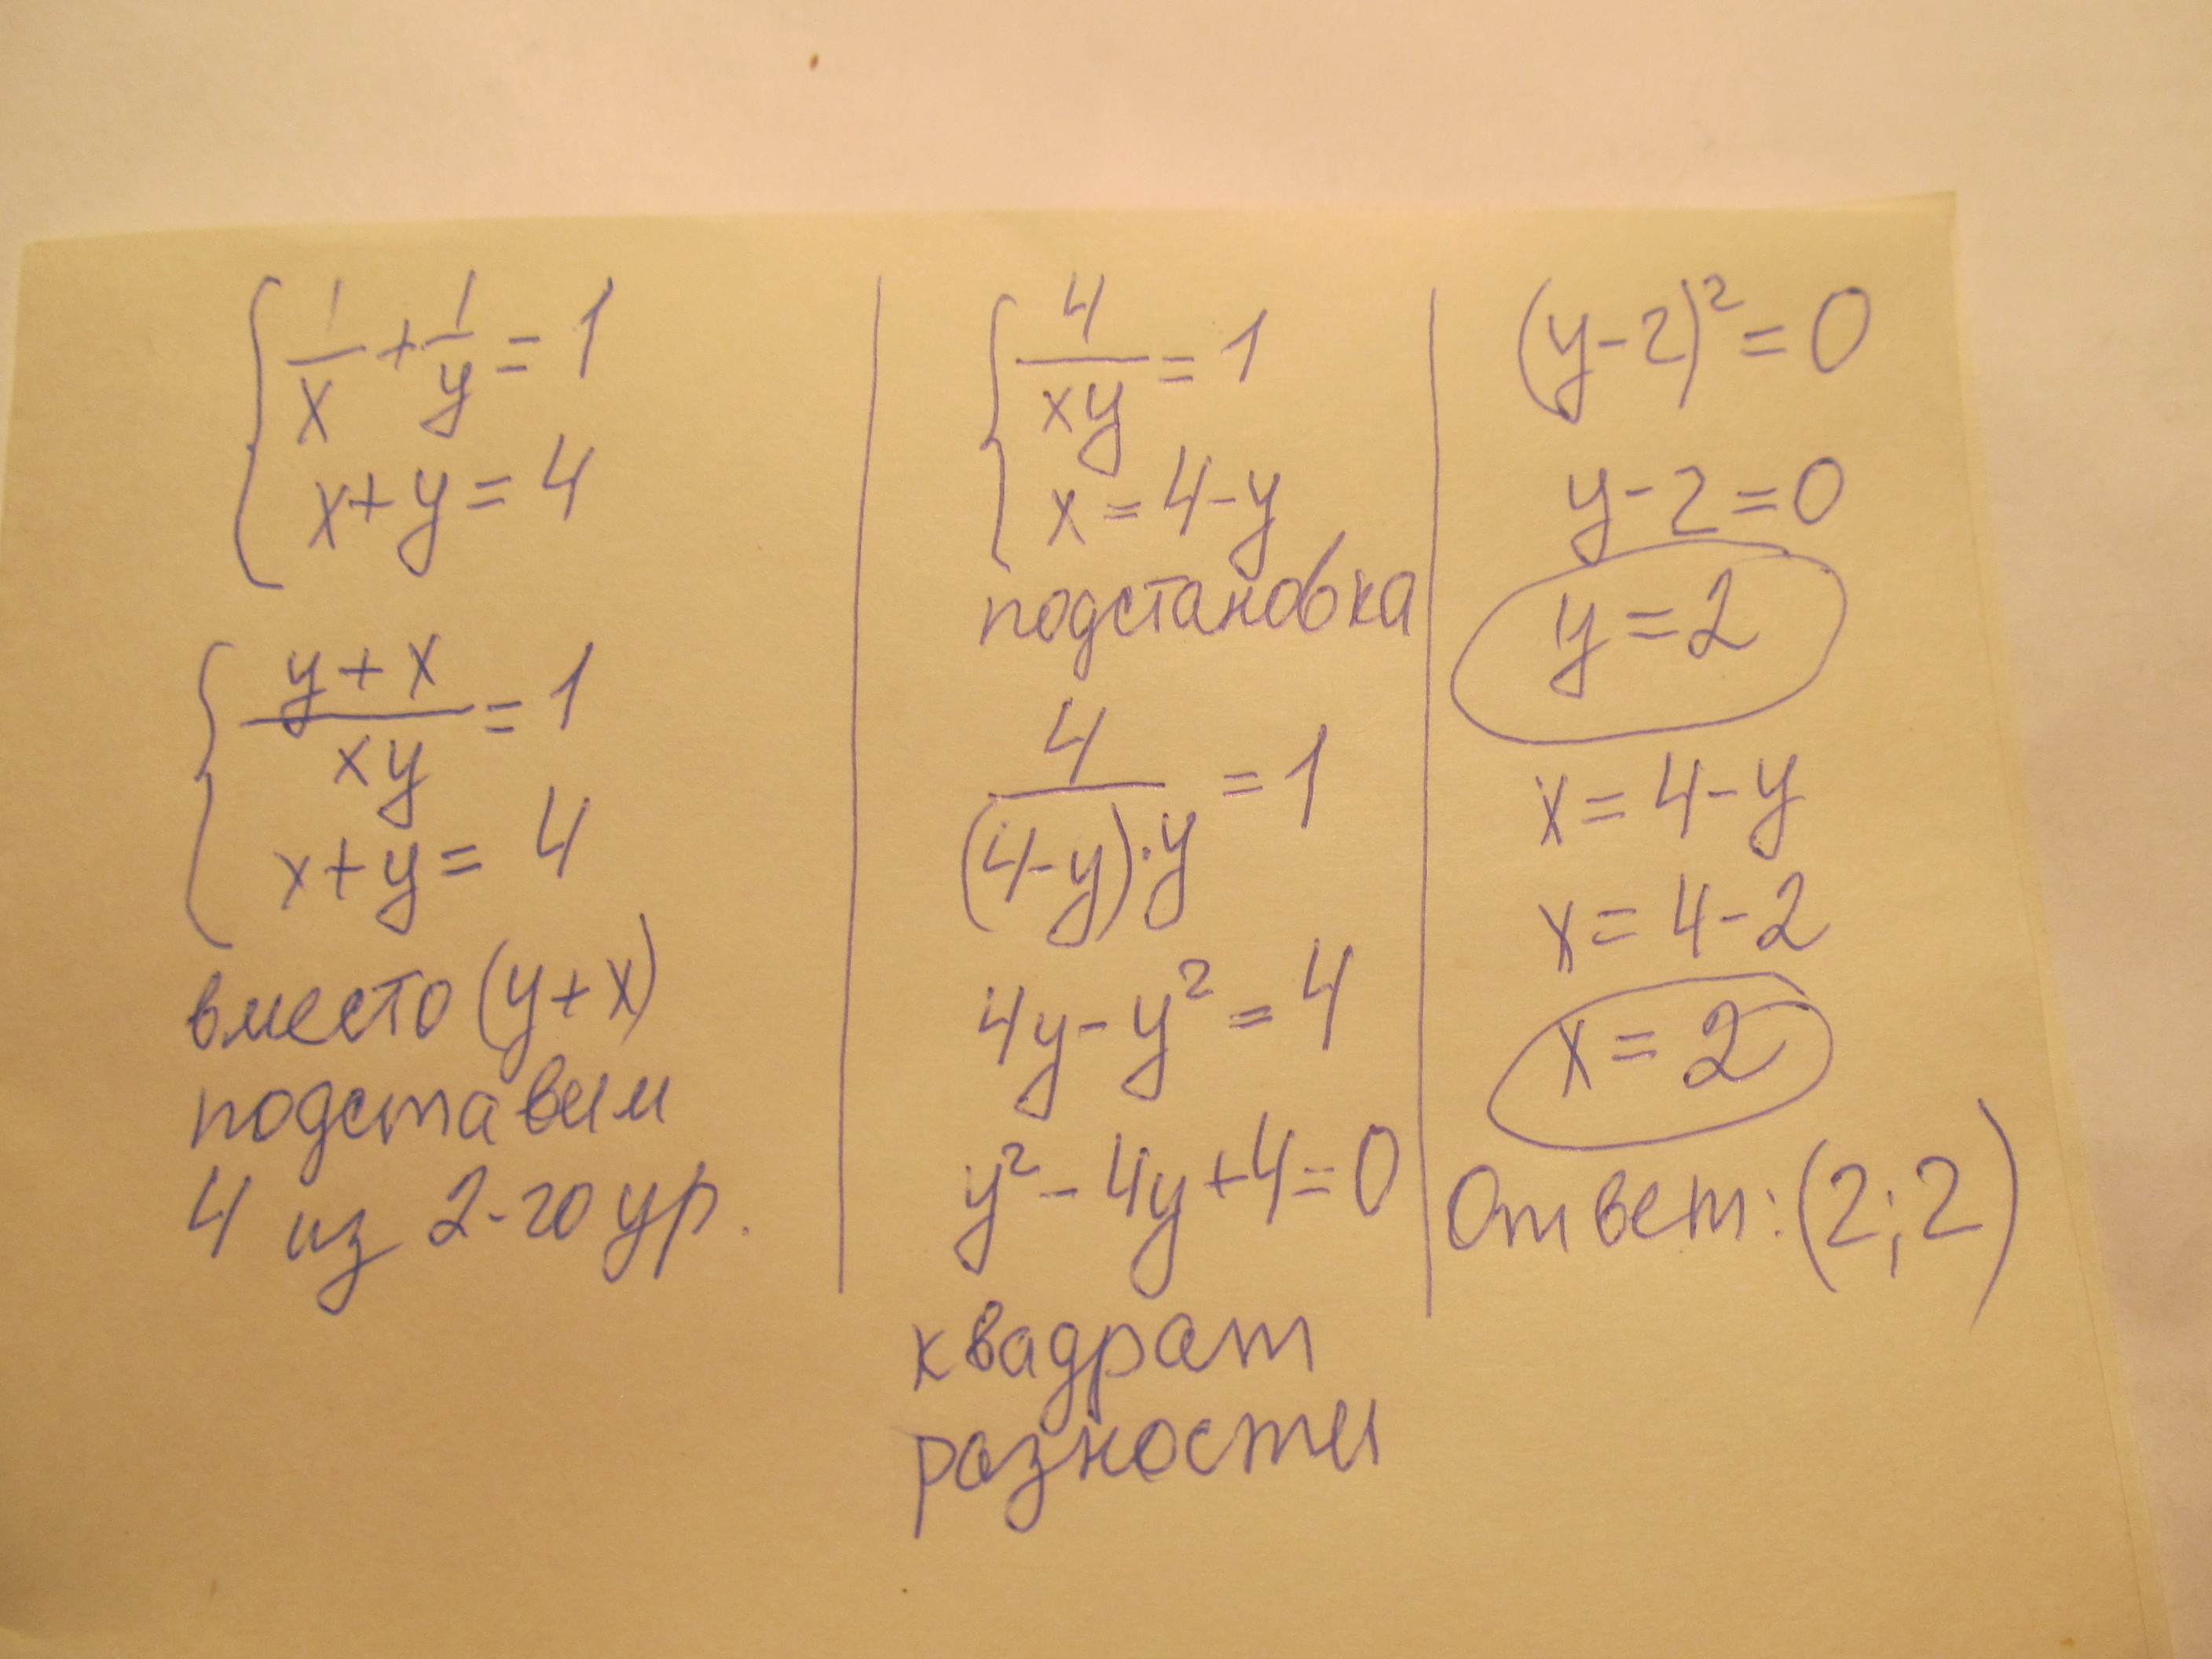 1/x + 1/y = 1
x+y = 4
y+x/xy = 1
x+y = 4
вместо (y+x)
подставим
4 из 2-го ур.
4/xy = 1
x = 4-y
подстановка
4/(4-y)·y = 1
4y - y² = 4
y² - 4y + 4 = 0
квадрат
разности
(y-2)² = 0
y-2 = 0
y = 2
x = 4-y
x = 4-2
x = 2
Ответ: (2; 2)